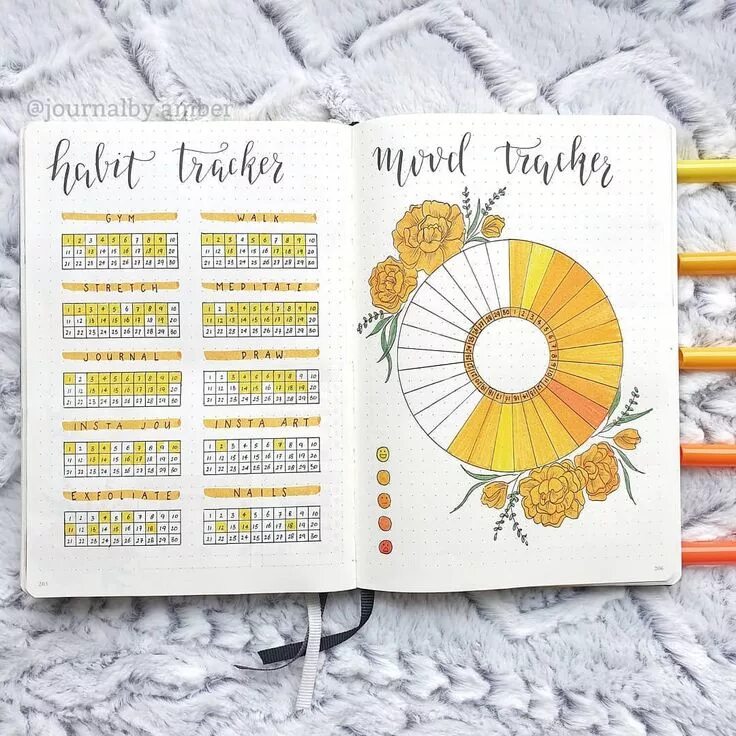 @journalby.amber
habit tracker
GYM
1 2 3 4 5 6 7 8 9 10
11 12 13 14 15 16 17 18 19 20
21 22 23 24 25 26 27 28 29 30
WALK
1 2 3 4 5 6 7 8 9 10
11 12 13 14 15 16 17 18 19 20
21 22 23 24 25 26 27 28 29 30
STRETCH
1 2 3 4 5 6 7 8 9 10
11 12 13 14 15 16 17 18 19 20
21 22 23 24 25 26 27 28 29 30
MEDITATE
1 2 3 4 5 6 7 8 9 10
11 12 13 14 15 16 17 18 19 20
21 22 23 24 25 26 27 28 29 30
JOURNAL
1 2 3 4 5 6 7 8 9 10
11 12 13 14 15 16 17 18 19 20
21 22 23 24 25 26 27 28 29 30
DRAW
1 2 3 4 5 6 7 8 9 10
11 12 13 14 15 16 17 18 19 20
21 22 23 24 25 26 27 28 29 30
INSTA JOU
1 2 3 4 5 6 7 8 9 10
11 12 13 14 15 16 17 18 19 20
21 22 23 24 25 26 27 28 29 30
INSTA ART
1 2 3 4 5 6 7 8 9 10
11 12 13 14 15 16 17 18 19 20
21 22 23 24 25 26 27 28 29 30
EXFOLIATE
1 2 3 4 5 6 7 8 9 10
11 12 13 14 15 16 17 18 19 20
21 22 23 24 25 26 27 28 29 30
NAILS
1 2 3 4 5 6 7 8 9 10
11 12 13 14 15 16 17 18 19 20
21 22 23 24 25 26 27 28 29 30
mood tracker
206